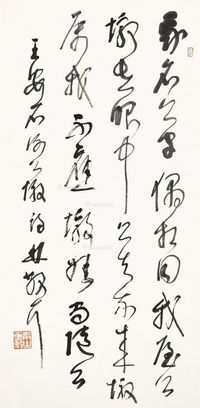 我名公字偶相同我屋公
墩在眼中公去我来墩
属我不應墩姓尚隨公
王安石谢公墩诗林散耳